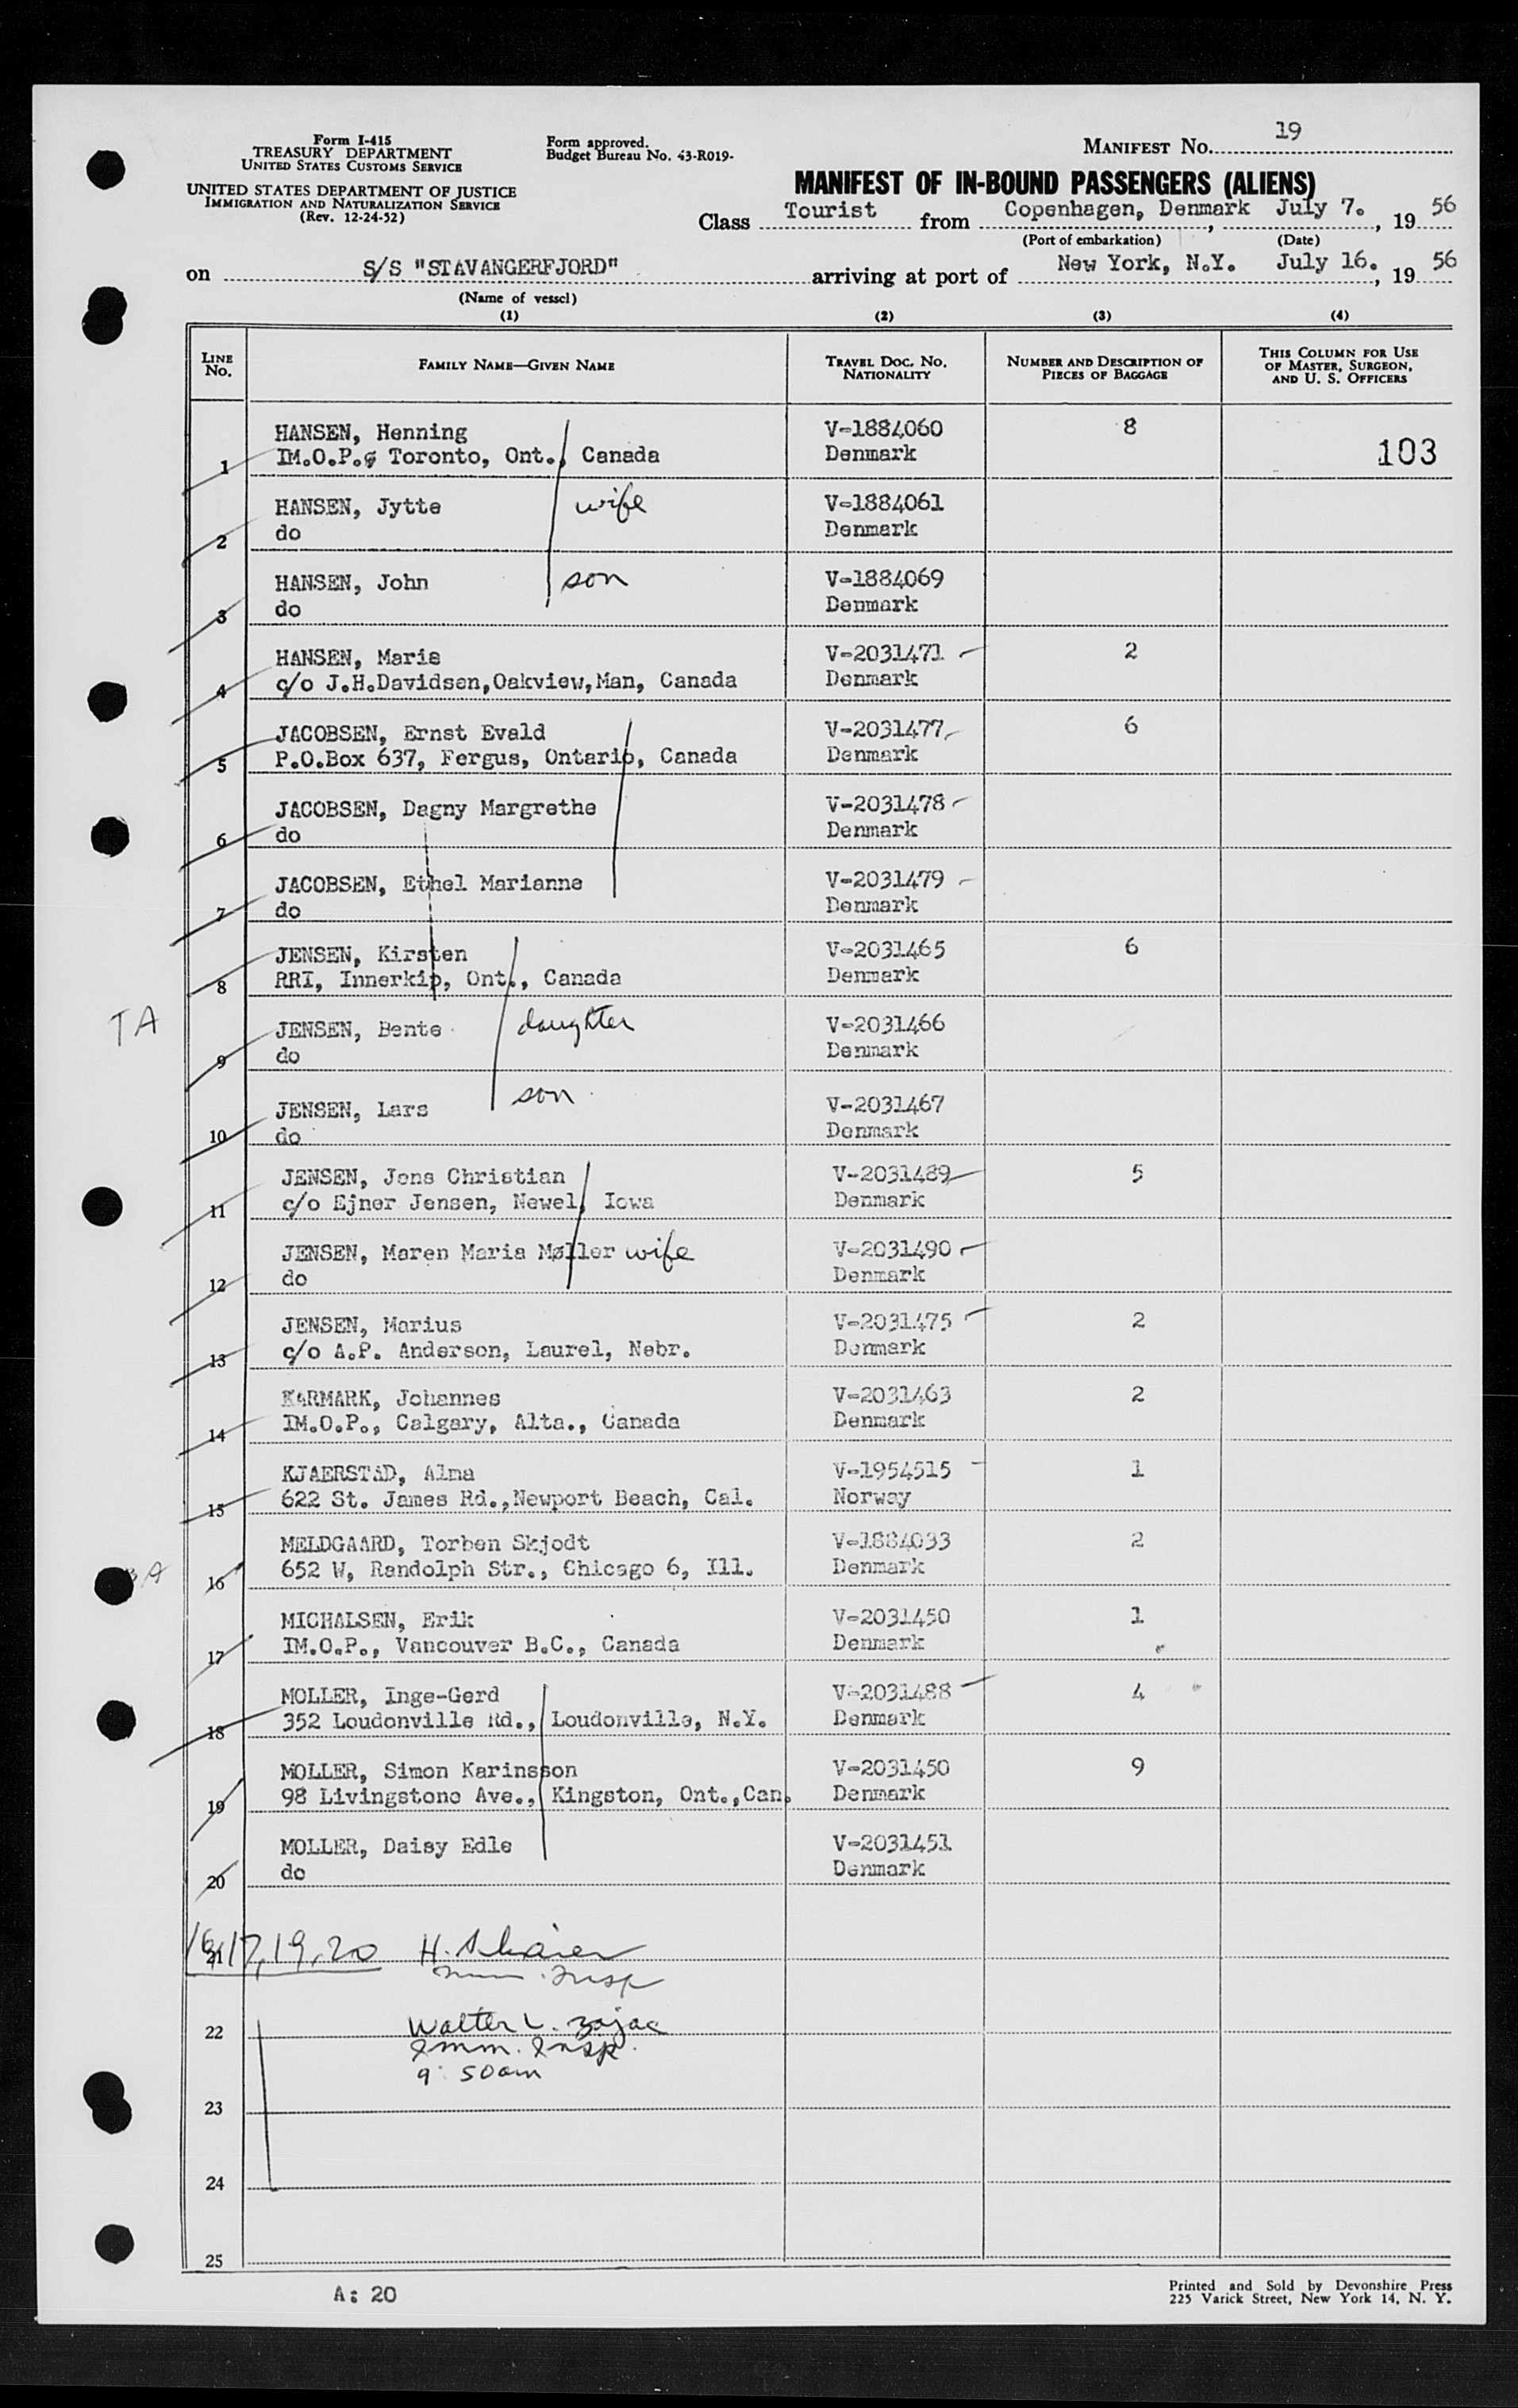 Form I-415
TREASURY DEPARTMENT
UNITED STATES CUSTOMS SERVICE
UNITED STATES DEPARTMENT OF JUSTICE
IMMIGRATION AND NATURALIZATION SERVICE
(Rev. 12-24-52)
Form approved.
Budget Bureau No. 43-R019-
MANIFEST No. 19
MANIFEST OF IN-BOUND PASSENGERS (ALIENS)
Class Tourist from Copenhagen, Denmark, July 7., 19 56
(Port of embarkation) (Date)
on S/S "STAVANGERFJORD" arriving at port of New York, N.Y. July 16., 19 56
(Name of vessel)
(1) (2) (3) (4)
LINE No. FAMILY NAME—GIVEN NAME TRAVEL DOC. NO. NATIONALITY NUMBER AND DESCRIPTION OF PIECES OF BAGGAGE THIS COLUMN FOR USE OF MASTER, SURGEON, AND U. S. OFFICERS
HANSEN, Henning V-1884060 8
1 IM.O.P., Toronto, Ont., Canada Denmark 103
HANSEN, Jytte wife V-1884061
2 do Denmark
HANSEN, John son V-1884069
3 do Denmark
HANSEN, Marie V-2031471 2
4 c/o J.H.Davidsen,Oakview,Man, Canada Denmark
JACOBSEN, Ernst Evald V-2031477 6
5 P.O.Box 637, Fergus, Ontario, Canada Denmark
JACOBSEN, Dagny Margrethe V-2031478
6 do Denmark
JACOBSEN, Ethel Marianne V-2031479
7 do Denmark
JENSEN, Kirsten V-2031465 6
8 RRI, Innerkip, Ont., Canada Denmark
TA
JENSEN, Bente daughter V-2031466
9 do Denmark
JENSEN, Lars son V-2031467
10 do Denmark
JENSEN, Jens Christian V-2031489 5
11 c/o Ejner Jensen, Newel, Iowa Denmark
JENSEN, Maren Marie Møller wife V-2031490
12 do Denmark
JENSEN, Marius V-2031475 2
13 c/o A.P. Anderson, Laurel, Nebr. Denmark
KARMARK, Johannes V-2031463 2
14 IM.O.P., Calgary, Alta., Canada Denmark
KJAERSTAD, Alma V-1954515 1
15 622 St. James Rd.,Newport Beach, Cal. Norway
MELDGAARD, Torben Skjodt V-1884033 2
16 652 W, Randolph Str., Chicago 6, Ill. Denmark
MICHALSEN, Erik V-2031450 1
17 IM.O.P., Vancouver B.C., Canada Denmark
MOLLER, Inge-Gerd V-2031488 4
18 352 Loudonville Rd., Loudonville, N.Y. Denmark
MOLLER, Simon Karinsson V-2031450 9
19 98 Livingstone Ave., Kingston, Ont.,Can. Denmark
MOLLER, Daisy Edle V-2031451
20 do Denmark
21 16,17,19,20 H.
Imm. Insp
22 Walter L. Zajac
Imm. Insp.
9:50am
23
24
25
A: 20
Printed and Sold by Devonshire Press
225 Varick Street, New York 14, N. Y.